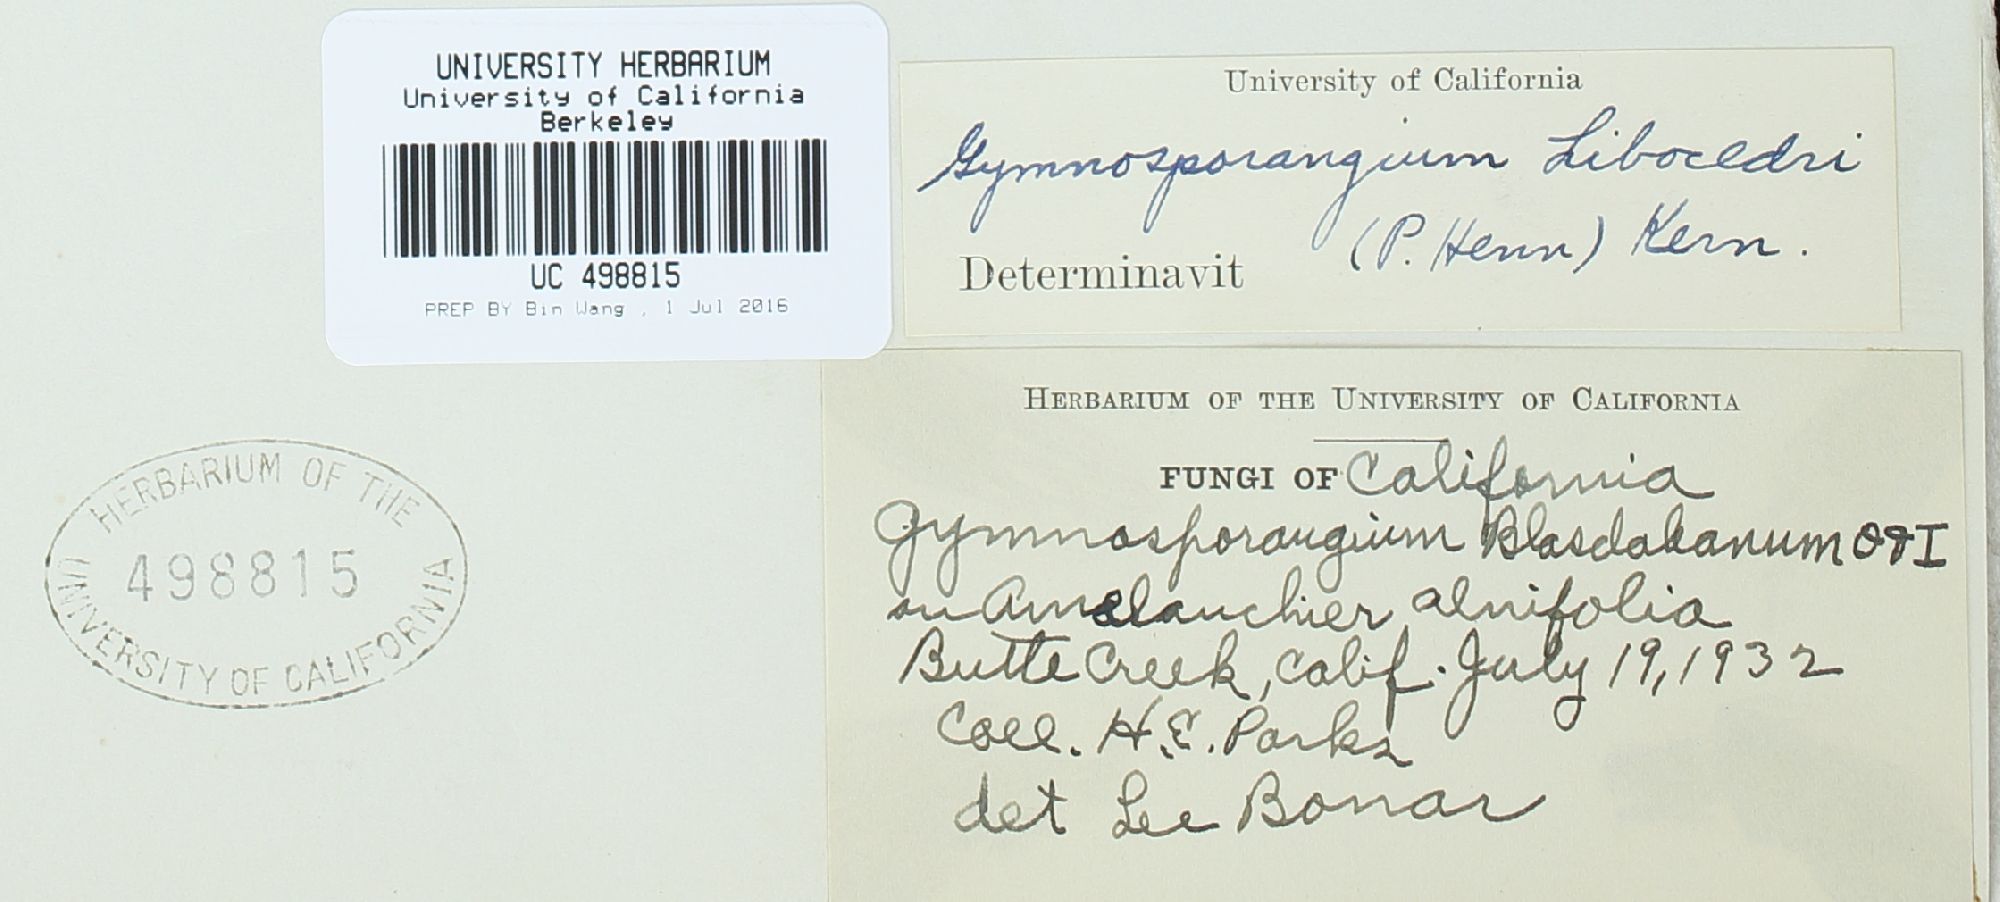 UNIVERSITY HERBARIUM
University of California
Berkeley
UC 498815
PREP BY Bin Wang , 1 Jul 2016
University of California
Gymnosporangium Libocedri
(P. Henn) Kern.
Determinavit
HERBARIUM OF THE UNIVERSITY OF CALIFORNIA
FUNGI OF California
Gymnosporangium Blasdaleanum O & I
on Amelanchier alnifolia
Butte Creek, Calif. July 19, 1932
Coll. H.E. Parks
det Lee Bonar
HERBARIUM OF THE
498815
UNIVERSITY OF CALIFORNIA